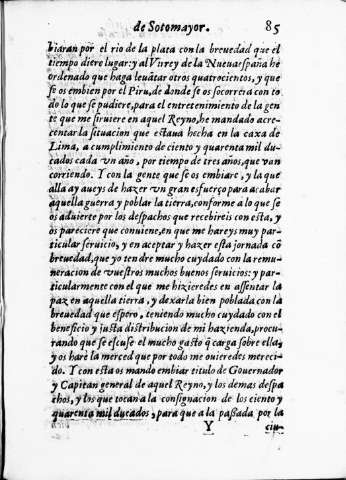 de Sotomayor. 85
biaran por el rio de la plata con la breuedad que el
tiempo diere lugar: y al Virey de la Nueuaespaña he
ordenado que haga leuãtar otros quatrocientos, y que
se os embien por el Piru, de donde se os socorrera con to
do lo que se pudiere, para el entretenimiento de la gen
te que me siruiere en aquel Reyno, he mandado acre-
centar la situacion que estaua hecha en la caxa de
Lima, a cumplimiento de ciento y quarenta mil du-
cados cada vn año, por tiempo de tres años, que van
corriendo. Y con la gente que se os embiare, y la que
alla ay aueys de hazer vn gran esfuerço para acabar
aquella guerra y poblar la tierra, conforme a lo que se
os aduierte por los despachos que recebireis con esta, y
os pareciere que conuiene, en que me hareys muy par-
ticular seruicio, y en aceptar y hazer esta jornada cõ
breuedad, que yo tendre mucho cuydado con la remu-
neracion de vuestros muchos buenos seruicios: y par-
ticularmente con el que me hizieredes en assentar la
paz en aquella tierra, y dexarla bien poblada con la
breuedad que espero, teniendo mucho cuydado con el
beneficio y justa distribucion de mi hazienda, procu-
rando que se escuse el mucho gasto q̃ carga sobre ella,
y os harè la merced que por todo me ouieredes mereci-
do. Y con esta os mando embiar titulo de Gouernador
y Capitan general de aquel Reyno, y los demas despa
chos, y los que tocan a la consignacion de los ciento y
quarenta mil ducados, para que a la passada por la
Y ciu-